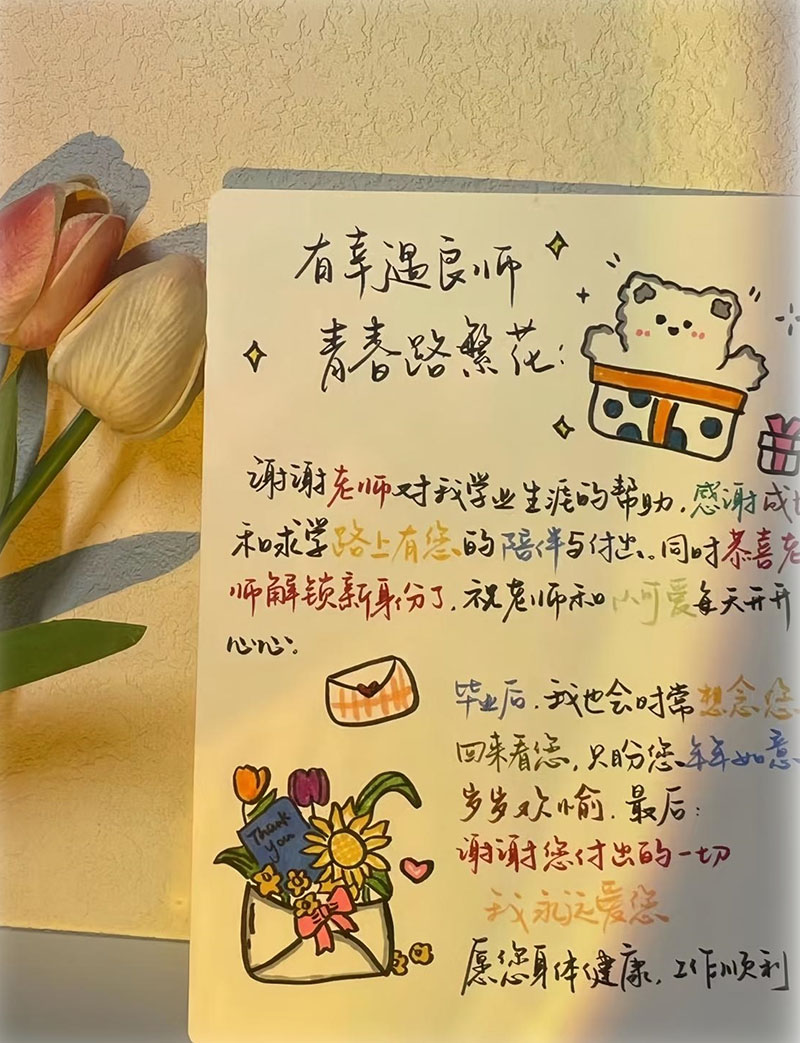 有幸遇良师
青春路繁花：
谢谢老师对我学业生涯的帮助，感谢成
和求学路上有您的陪伴与付出。同时恭喜老
师解锁新身份了，祝老师和小可爱每天开开
心心。
毕业后，我也会时常想念您
回来看您，只盼您年年如意
岁岁欢愉。最后：
谢谢您付出的一切
我永远爱您
愿您身体健康，工作顺利
Thank
you